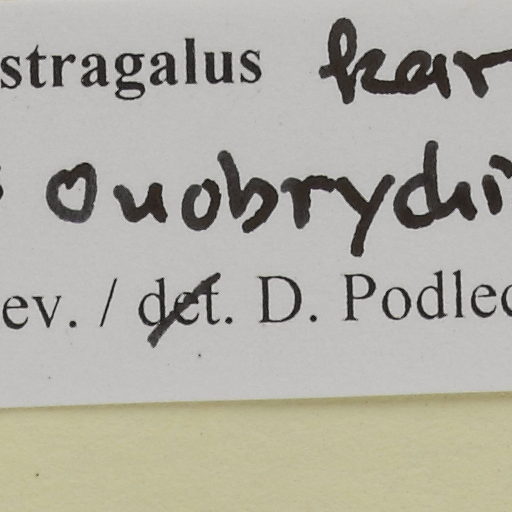 stragalus kar
Onobrychi
ev. / det. D. Podlec